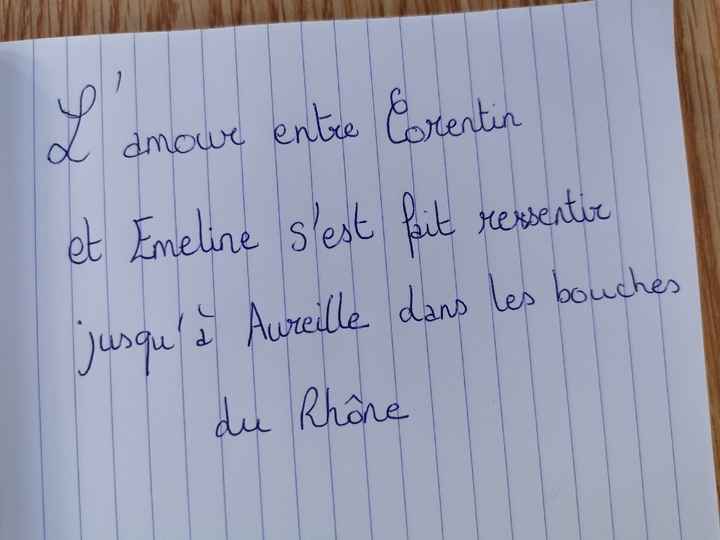 L'amour entre Corentin
et Emeline s'est fait ressentir
jusqu'à Aureille dans les bouches
du Rhône